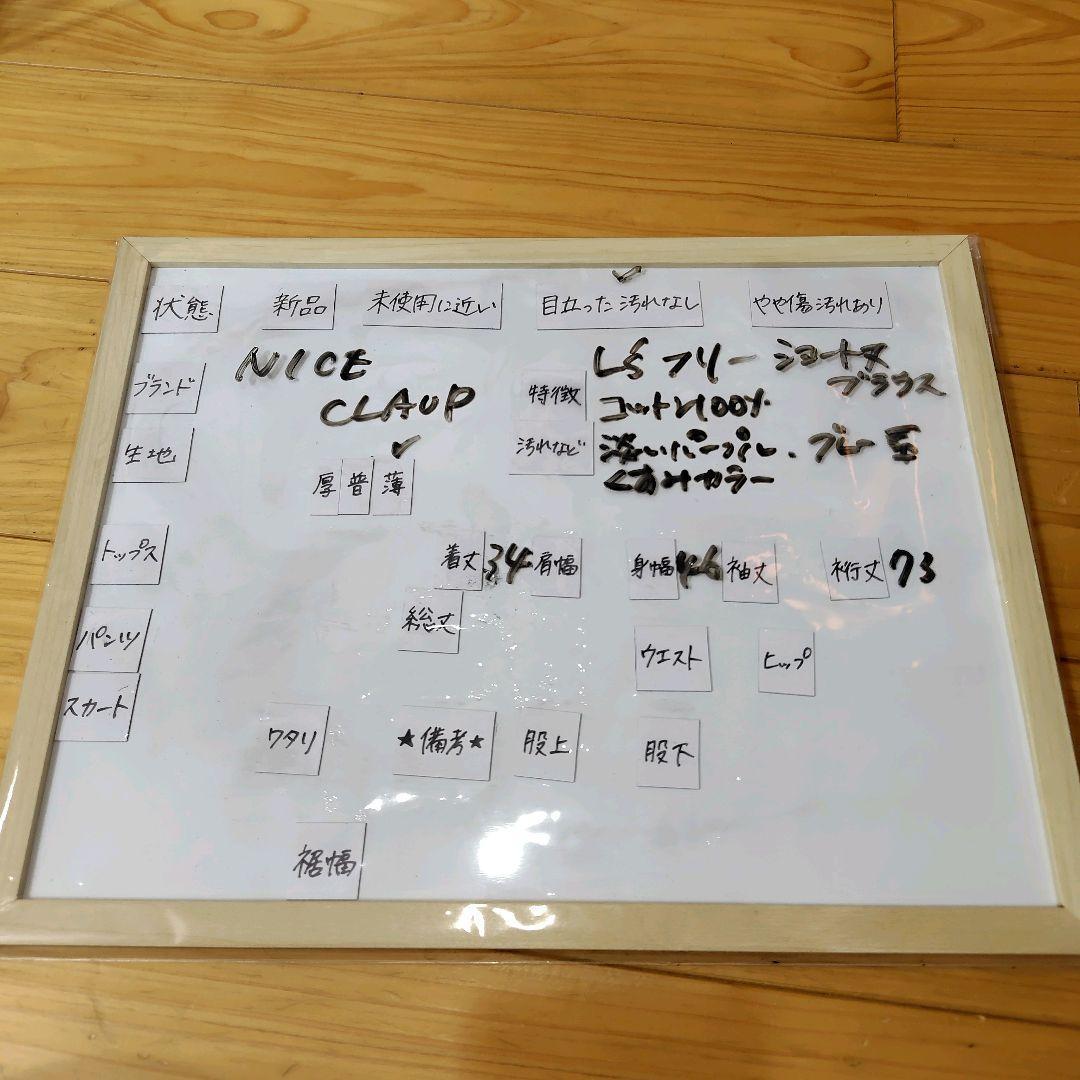 状態 新品 未使用に近い 目立った汚れなし やや傷汚れあり
ブランド NICE CLAUP
特徴 LS フリー ショート丈 ブラウス
コットン100%
生地 厚 普 薄
汚れなど 淡いパープル、グレー系
くすみカラー
トップス 着丈 34 肩幅 身幅 46 袖丈 裄丈 73
総丈
パンツ ウエスト ヒップ
スカート
ワタリ ★備考★ 股上 股下
裾幅